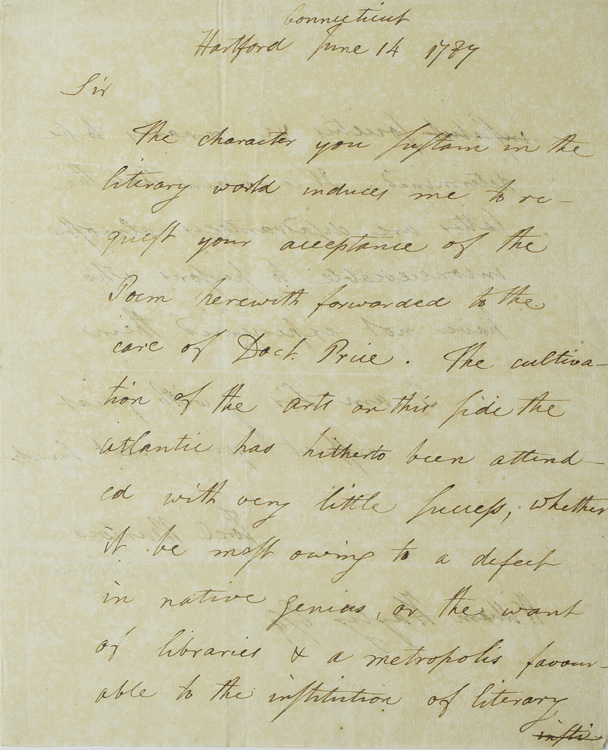 Connecticut
Hartford June 14 1787
Sir
The character you sustain in the
literary world induces me to re-
quest your acceptance of the
Poem herewith forwarded to the
care of Doct. Price. The cultiva-
tion of the arts on this side the
atlantic has hitherto been attend-
ed with very little success; whether
it be most owing to a defect
in native genius, or the want
of libraries & a metropolis favour-
able to the institution of literary
insti